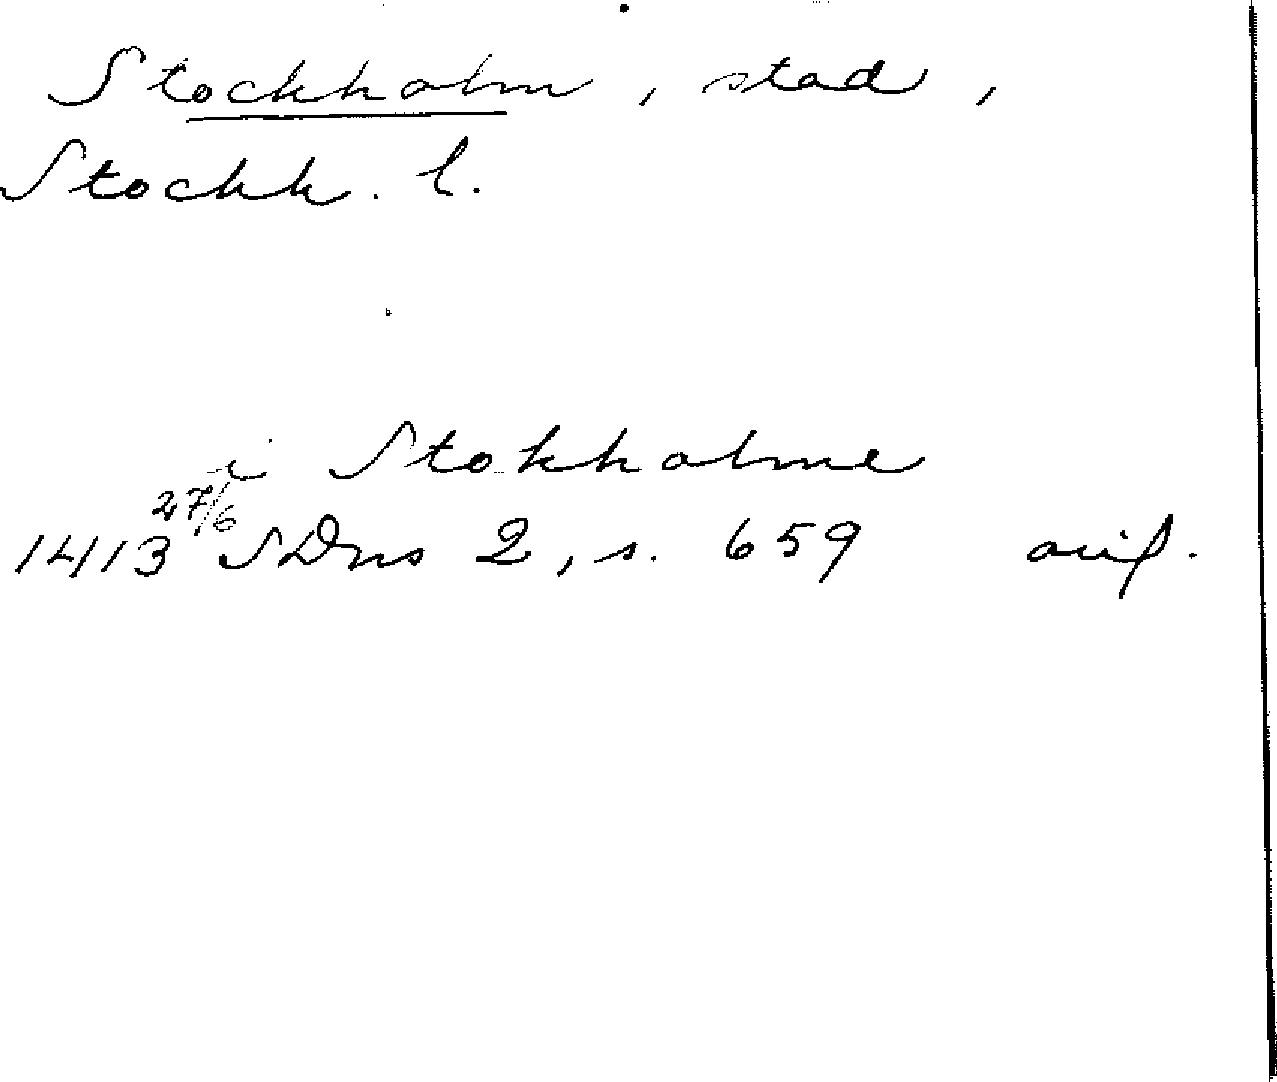 Stockholm, stad,
Stockh. l.
i Stokholme
1413 27/6 SDns 2, s. 659 avf.